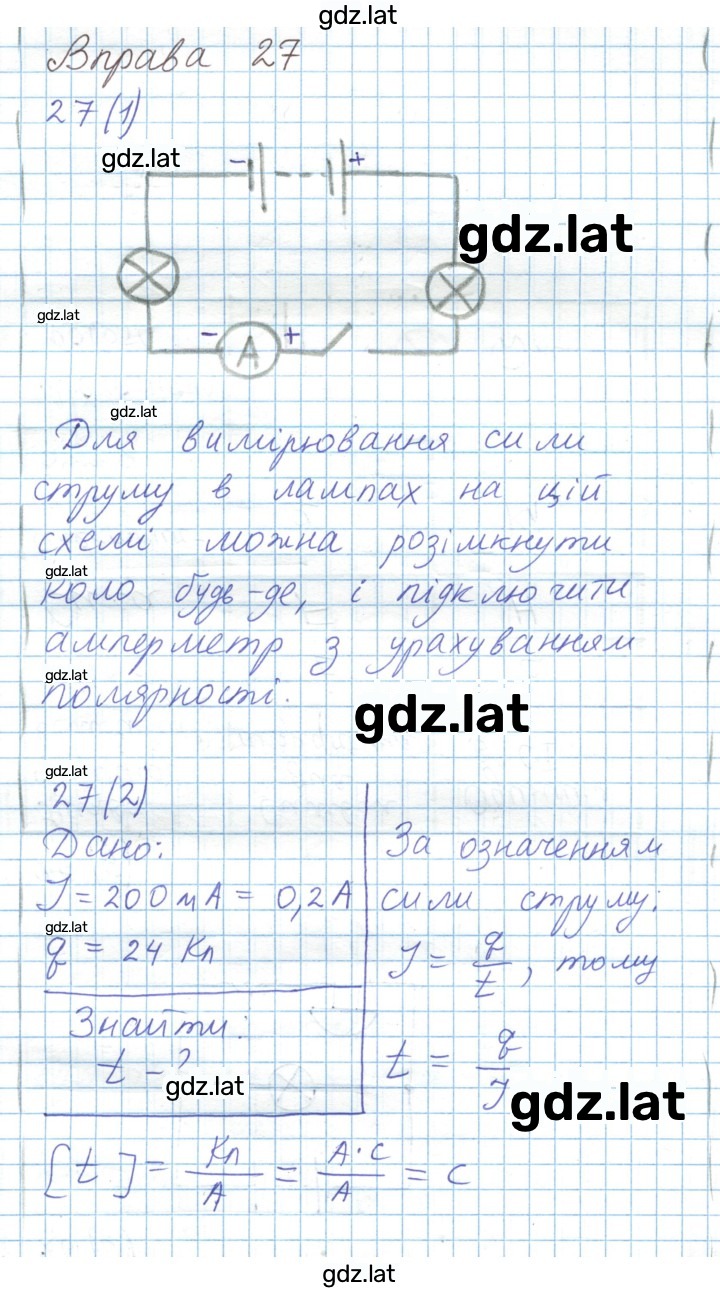 gdz.lat
Вправа 27
27(1)
gdz.lat
- +
gdz.lat
gdz.lat
- А +
gdz.lat
Для вимірювання сили
струму в лампах на цій
схемі можна розімкнути
gdz.lat
коло будь-де, і підключити
амперметр з урахуванням
gdz.lat
полярності.
gdz.lat
gdz.lat
27(2)
Дано:
I = 200 мА = 0,2 А
gdz.lat
q = 24 Кл
Знайти:
t - ?
gdz.lat
За означенням
сили струму:
I = q/t, тому
t = q/I
gdz.lat
[t] = Кл/А = А·с/А = с
gdz.lat